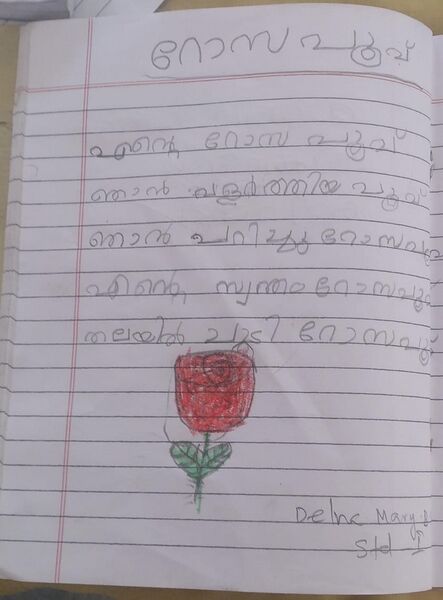 റോസ പൂവ്
എന്റെ റോസ പൂവ്
ഞാൻ വളർത്തിയ പൂവ്
ഞാൻ പറിച്ച റോസപൂവ
എന്റെ സ്വന്തം റോസപൂവ
തലയിൽ ചൂടി റോസപൂ
Delna Mary
Std I